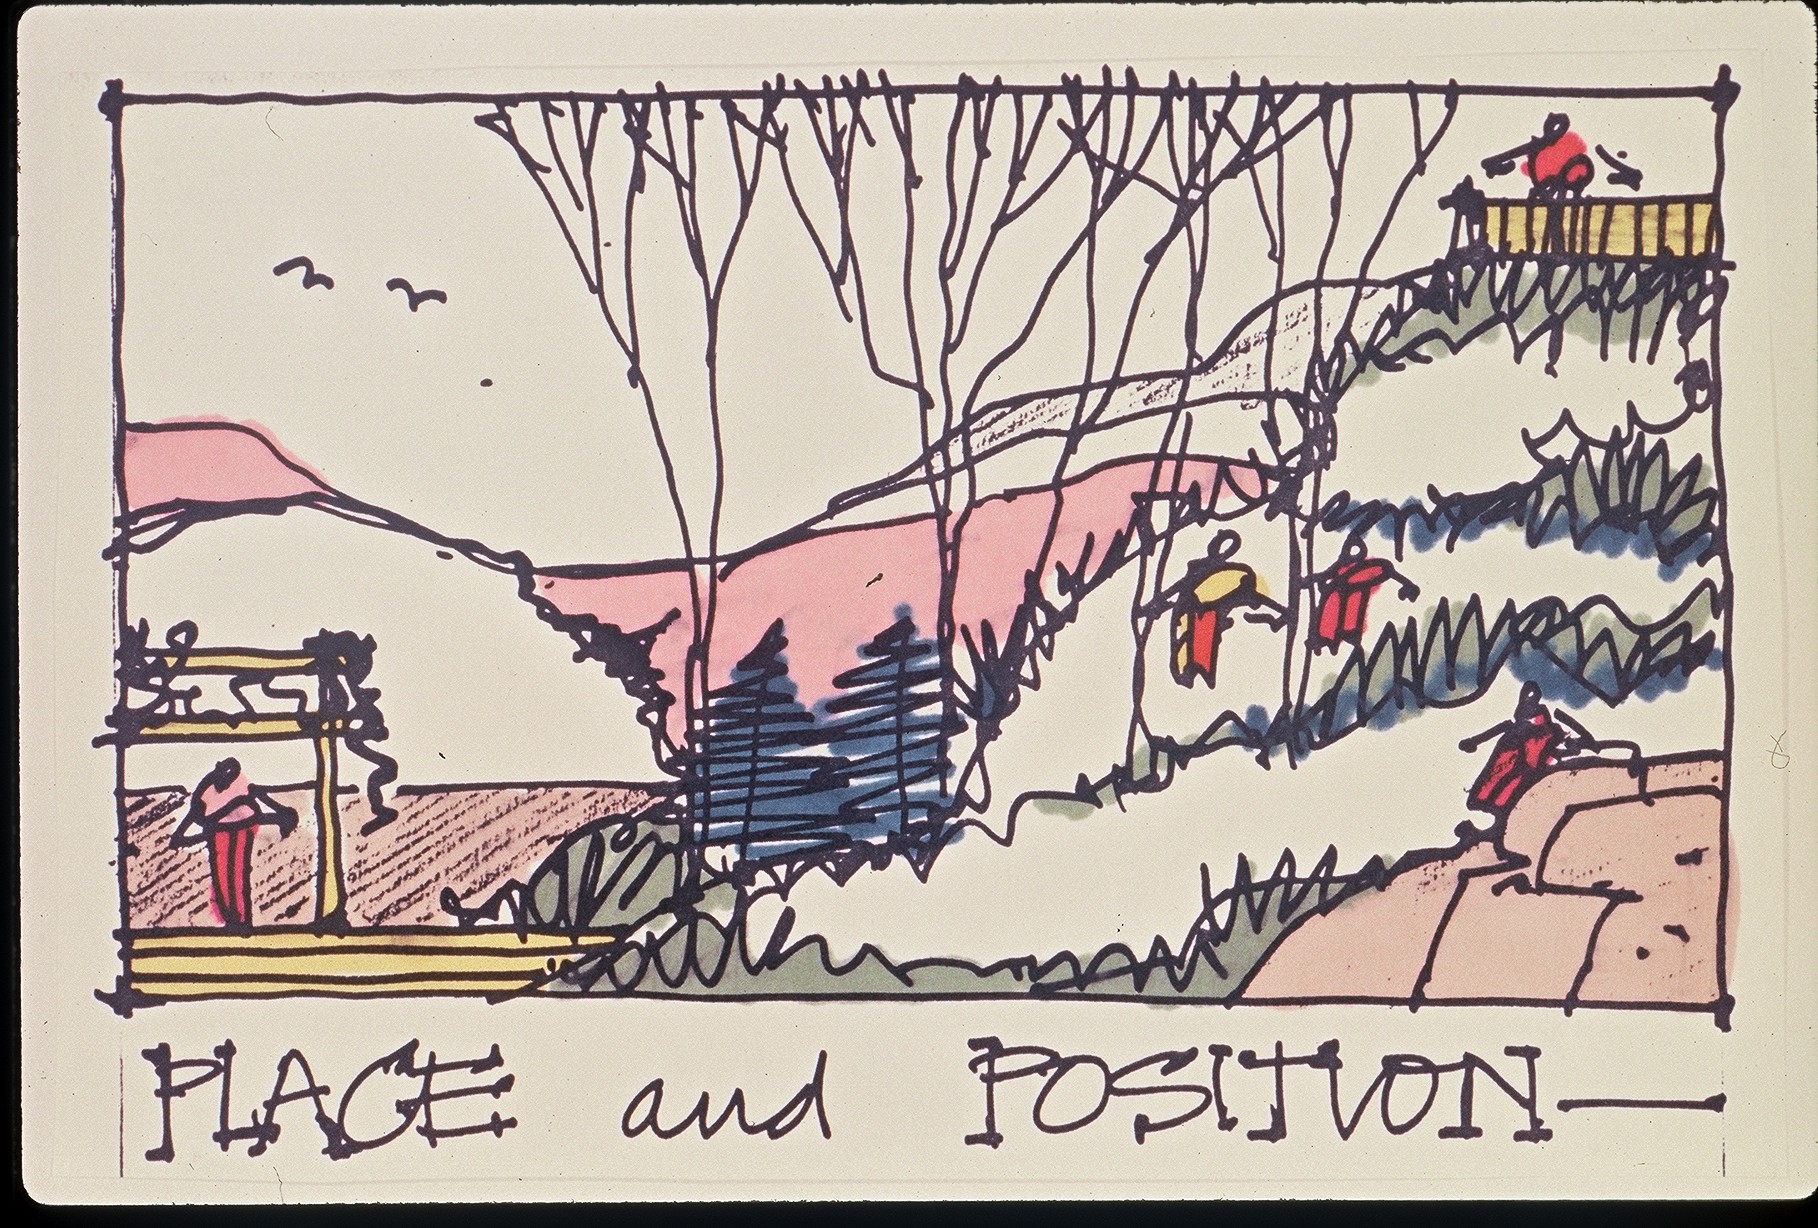 PLACE and POSITION—